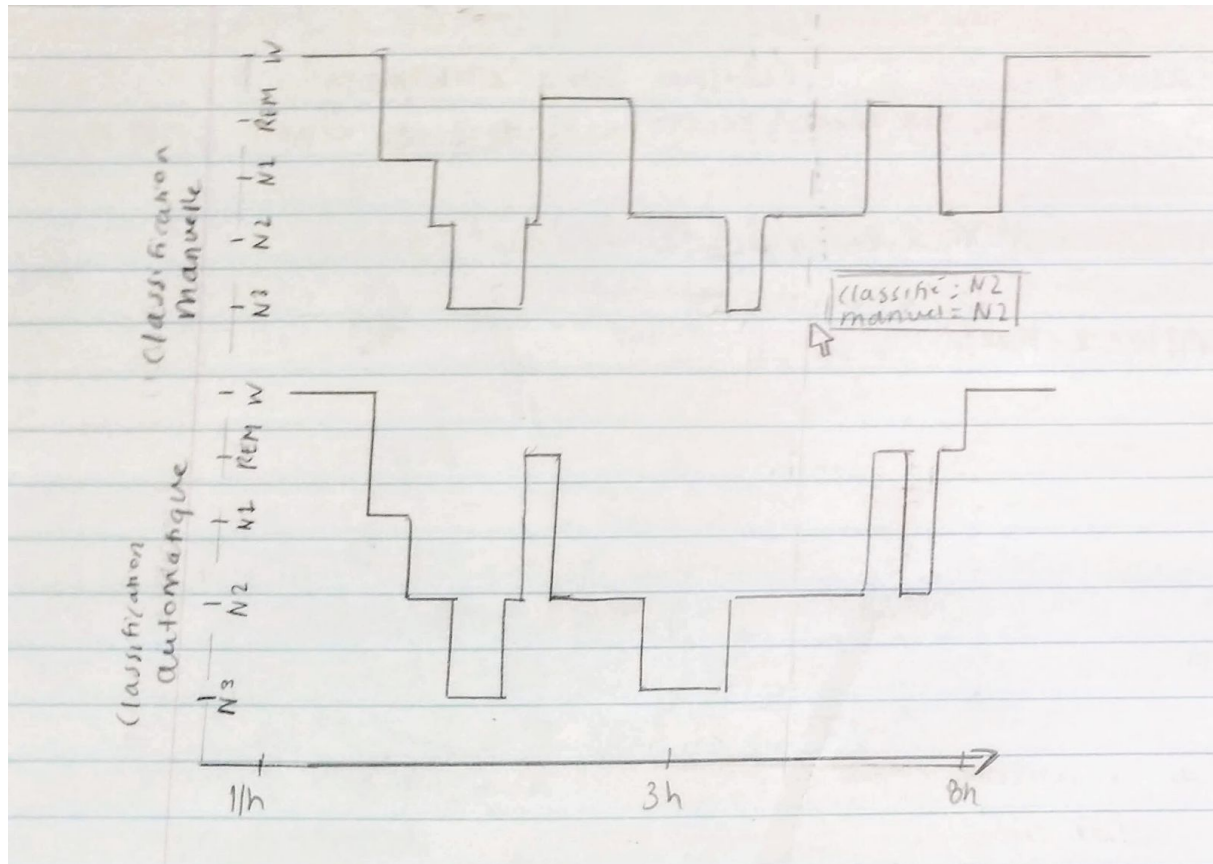 Classification
manuelle
W
REM
N1
N2
N3
classifié: N2
manuel= N2
Classification
automatique
W
REM
N1
N2
N3
1h
3h
8h